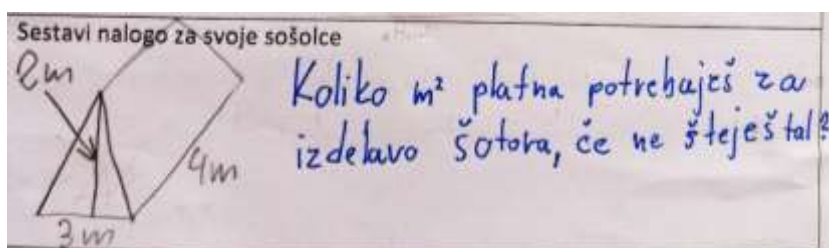 Sestavi nalogo za svoje sošolce
2m
Koliko m² platna potrebuješ za
izdelavo šotora, če ne šteješ tal?
4m
3m